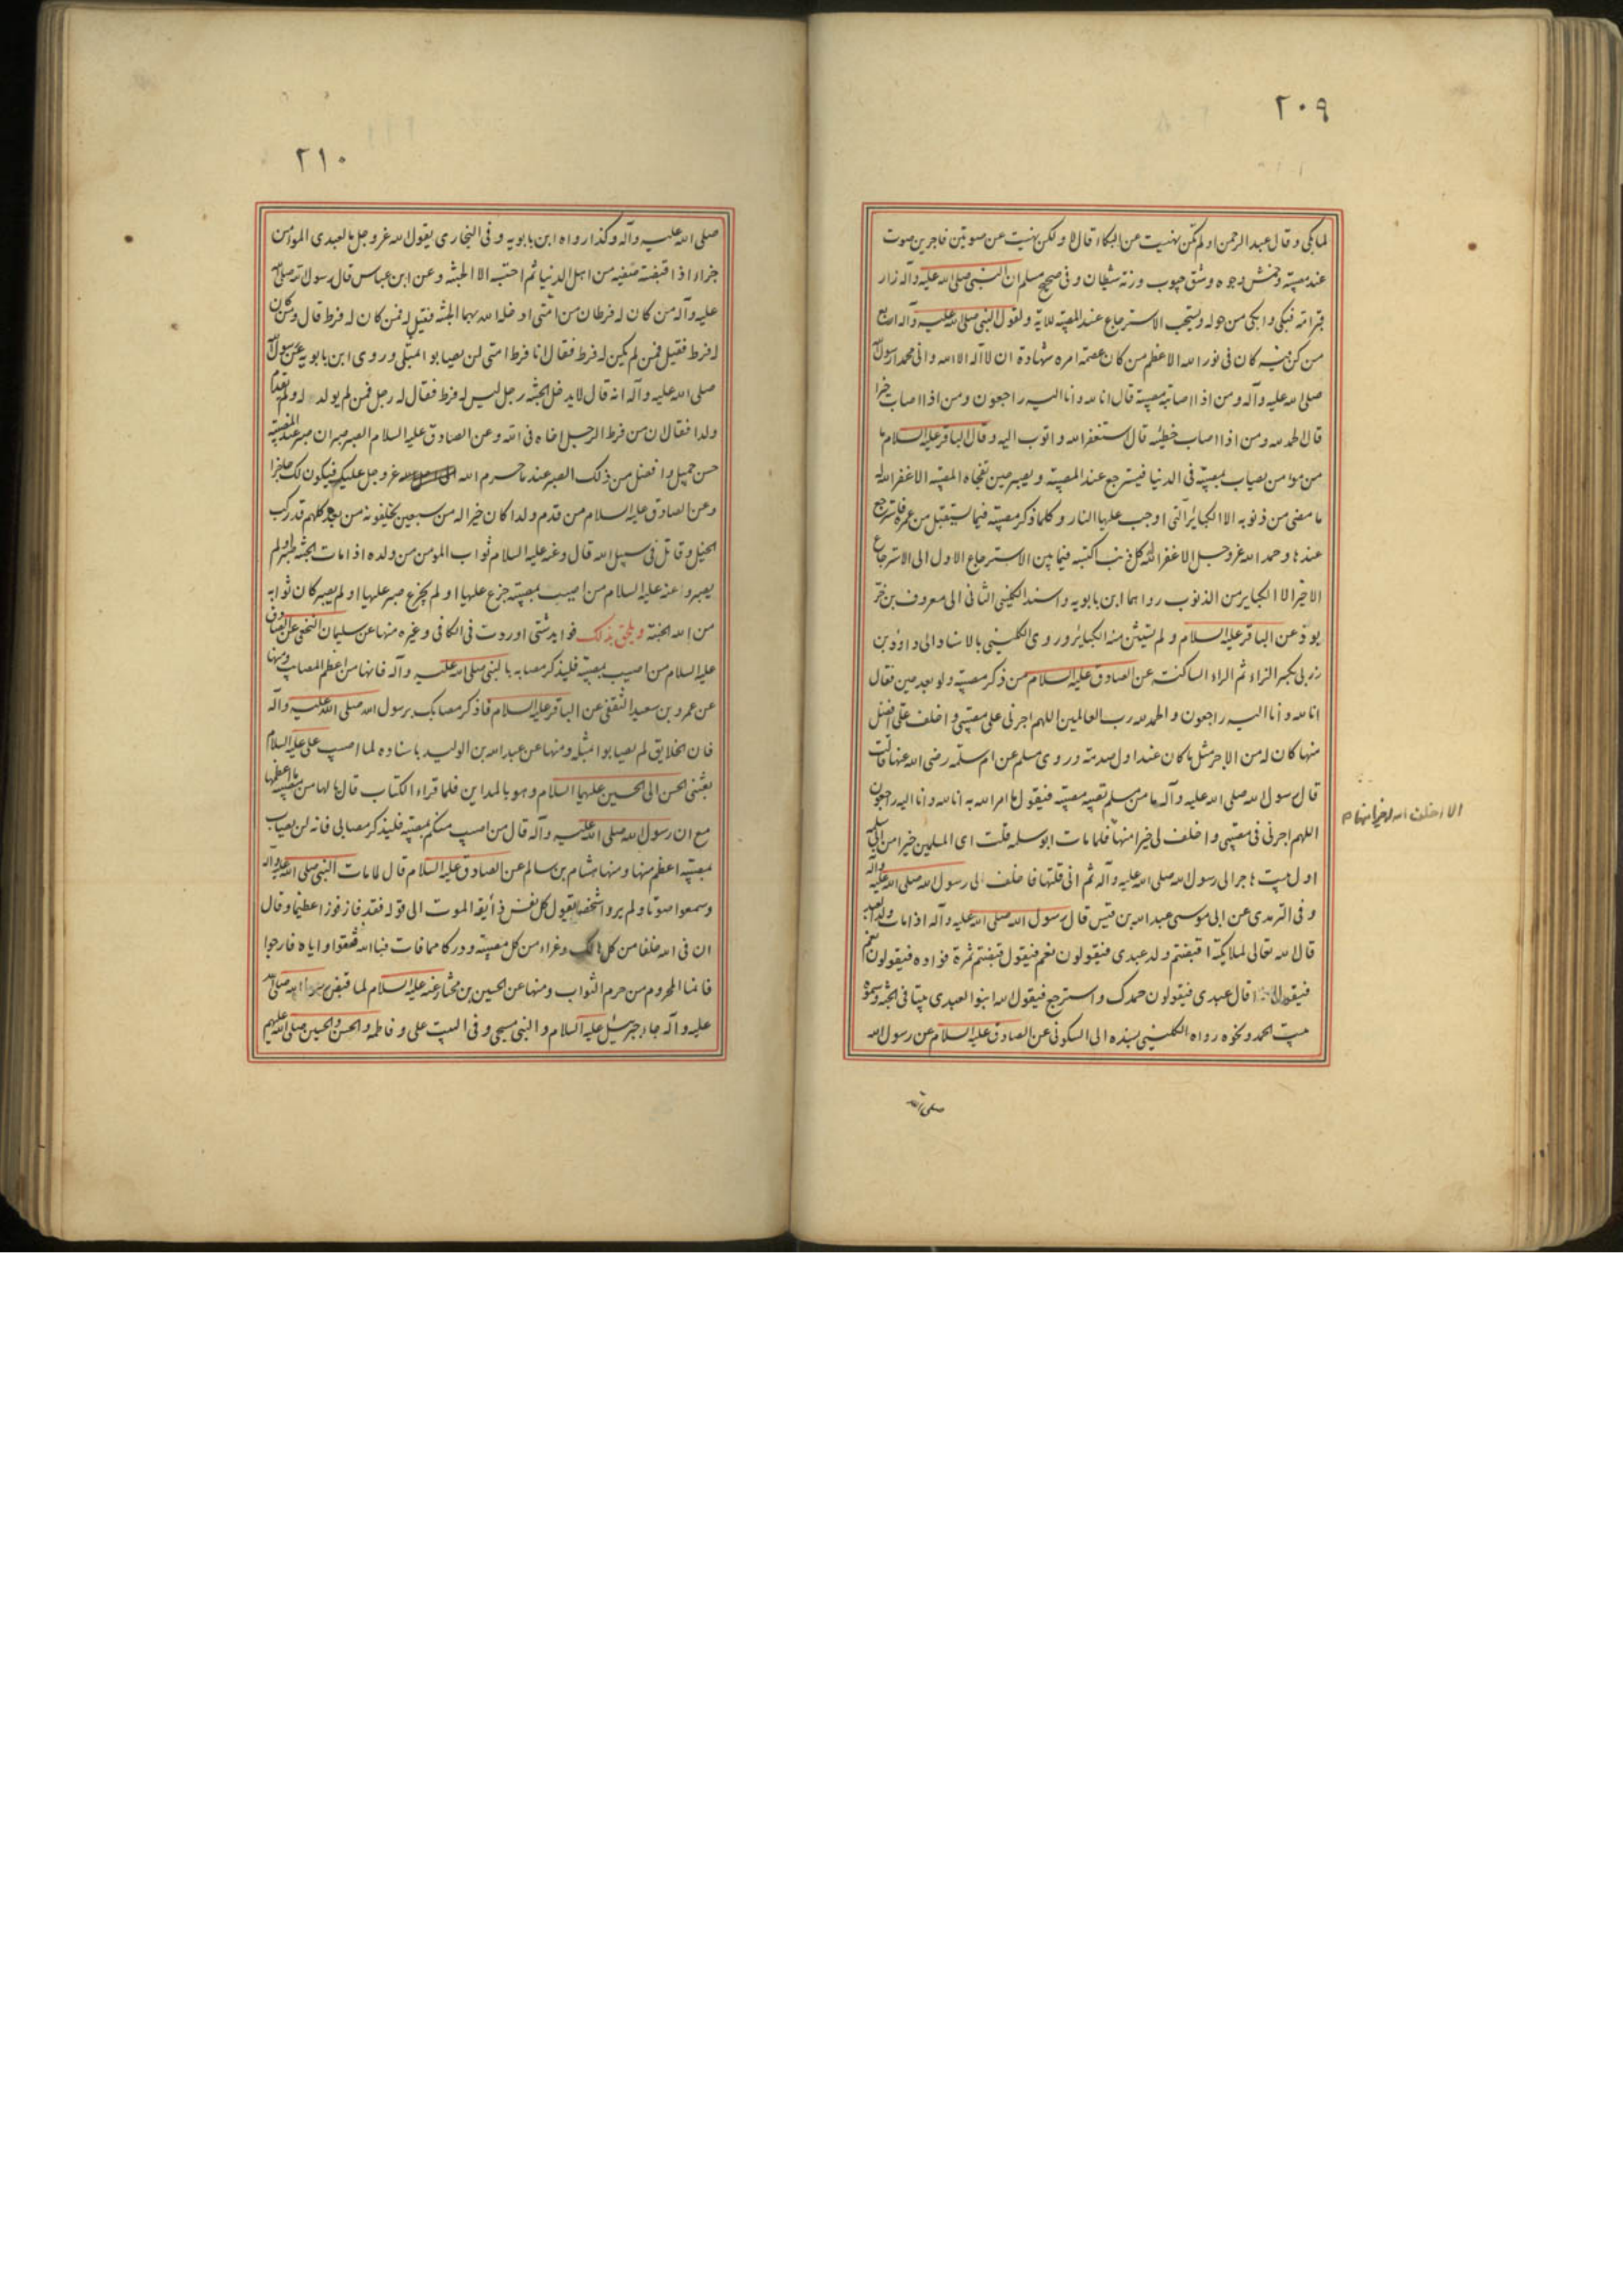 ٢٠٩
لما بكى وقال عبد الرحمن او لم تكن نهيت عن البكاء قال لا ولكن نهيت عن صوتين فاجرين صوت
عند مصيبة وخمش وجوه وشق جيوب ورنة شيطان وفى صحيح مسلم ان النبى صلى الله عليه وآله زار
قبر امه فبكى وابكى من حوله ويستحب الاسترجاع عند المصيبة للآية ولقول النبى صلى الله عليه وآله اربع
من كن فيه كان فى نور الله الاعظم من كان عصمة امره شهادة ان لا اله الا الله وانى محمدا رسول الله
صلى الله عليه وآله ومن اذا اصابته مصيبة قال انا لله وانا اليه راجعون ومن اذا اصاب خيرا
قال الحمد لله ومن اذا اصاب خطيئة قال استغفر الله واتوب اليه وقال الباقر عليه السلام ما
من مؤمن يصاب بمصيبة فى الدنيا فيسترجع عند المصيبة ويصبر حين تفجاه المصيبة الا غفر الله له
ما مضى من ذنوبه الا الكبائر التى اوجب عليها النار وكلما ذكر مصيبة فيما يستقبل من عمره فاسترجع
عندها وحمد الله عز وجل الا غفر الله كل ذنب اكتسبه فيما بين الاسترجاع الاول الى الاسترجاع
الاخير الا الكباير من الذنوب رواهما ابن بابويه واسند الكلينى الثانى الى معروف بن خر
بوذ عن الباقر عليه السلام ولم يستثن منه الكبائر وروى الكلينى بالاسناد الى داود بن
زربى بكسر الزاء ثم الراء الساكنة عن الصادق عليه السلام من ذكر مصيبة ولو بعد حين فقال
انا لله وانا اليه راجعون والحمد لله رب العالمين اللهم اجرنى على مصيبتى واخلف على افضل
منها كان له من الاجر مثل ما كان عند اول صدمة وروى مسلم عن ام سلمة رضى الله عنها قالت
قال رسول الله صلى الله عليه وآله ما من مسلم تصيبه مصيبة فيقول ما امر الله به انا لله وانا اليه راجعون
اللهم اجرنى فى مصيبتى واخلف لى خيرا منها فلما مات ابو سلمه قلت اى المسلمين خير من ابى سلمة
الا اخلف الله له خيرا منها م
اول بيت هاجر الى رسول الله صلى الله عليه وآله ثم انى قلتها فاخلف لى رسول الله صلى الله عليه وآله
وفى الترمدى عن ابى موسى عبد الله بن قيس قال رسول الله صلى الله عليه وآله اذا مات ولد العبد
قال الله تعالى لملايكته اقبضتم ولد عبدى فيقولون نعم فيقول قبضتم ثمرة فواده فيقولون نعم
فيقول ماذا قال عبدى فيقولون حمدك واسترجع فيقول الله ابنوا لعبدى بيتا فى الجنة وسموه
بيت الحمد ونحوه رواه الكلينى بسنده الى السكونى عن الصادق عليه السلام عن رسول الله
صلى الله
٢١٠
صلى الله عليه وآله وكذا رواه ابن بابويه وفى البخارى يقول الله عز وجل ما لعبدى المؤمن
جزاء اذا قبضت صفيه من اهل الدنيا ثم احتسبه الا الجنة وعن ابن عباس قال رسول الله صلى الله
عليه وآله من كان له فرطان من امتى ادخله الله بهما الجنة فقيل له فمن كان له فرط قال ومن كان
له فرط فقيل فمن لم يكن له فرط فقال انا فرط امتى لن يصابوا بمثلى وروى ابن بابويه عن رسول الله
صلى الله عليه وآله انه قال لا يدخل الجنة رجل ليس له فرط فقال له رجل فمن لم يولد له ولم يقدم
ولدا فقال ان من فرط الرجل اخاه فى الله وعن الصادق عليه السلام الصبر صبران صبر عند المصيبة
حسن جميل وافضل من ذلك الصبر عند ما حرم الله عز وجل عليك فيكون لك حاجزا
وعن الصادق عليه السلام من قدم ولدا كان خيرا له من سبعين يخلفونه من بعده كلهم قد ركب
الخيل وقاتل فى سبيل الله قال وعنه عليه السلام ثواب المومن من ولده اذا مات الجنة صبر او لم
يصبر وعنه عليه السلام من اصيب بمصيبة جزع عليها او لم يجزع صبر عليها او لم يصبر كان ثوابه
من الله الجنة ويلحق بذلك فوايد شتى اوردت فى الكافى وغيره منها عن سليمان النخعى عن الصادق
عليه السلام من اصيب بمصيبة فليذكر مصابه بالنبى صلى الله عليه وآله فانها من اعظم المصايب ومنها
عن عمرو بن سعيد الثقفى عن الباقر عليه السلام فاذكر مصابك برسول الله صلى الله عليه وآله
فان الخلايق لم يصابوا بمثله ومنها عن عبد الله بن الوليد باسناده لما اصيب على عليه السلام
بعثنى الحسن الى الحسين عليهما السلام وهو بالمداين فلما قراء الكتاب قال يا لها من مصيبة ما اعظمها
مع ان رسول الله صلى الله عليه وآله قال من اصيب منكم بمصيبة فليذكر مصابى فانه لن يصاب
بمصيبة اعظم منها ومنها هشام بن سالم عن الصادق عليه السلام قال لما مات النبى صلى الله عليه وآله
وسمعوا صوتا ولم يروا شخصا يقول كل نفس ذايقة الموت الى قوله فقد فاز فوزا عظيما وقال
ان فى الله خلفا من كل هالك وعزاء من كل مصيبة ودركا مما فات فبالله فثقوا واياه فارجوا
فانما المحروم من حرم الثواب ومنها عن الحسين بن مختار عنه عليه السلام لما قبض رسول الله صلى الله
عليه وآله جاء جبرئيل عليه السلام والنبى مسجى وفى البيت على وفاطمه والحسن والحسين صلى الله عليهم